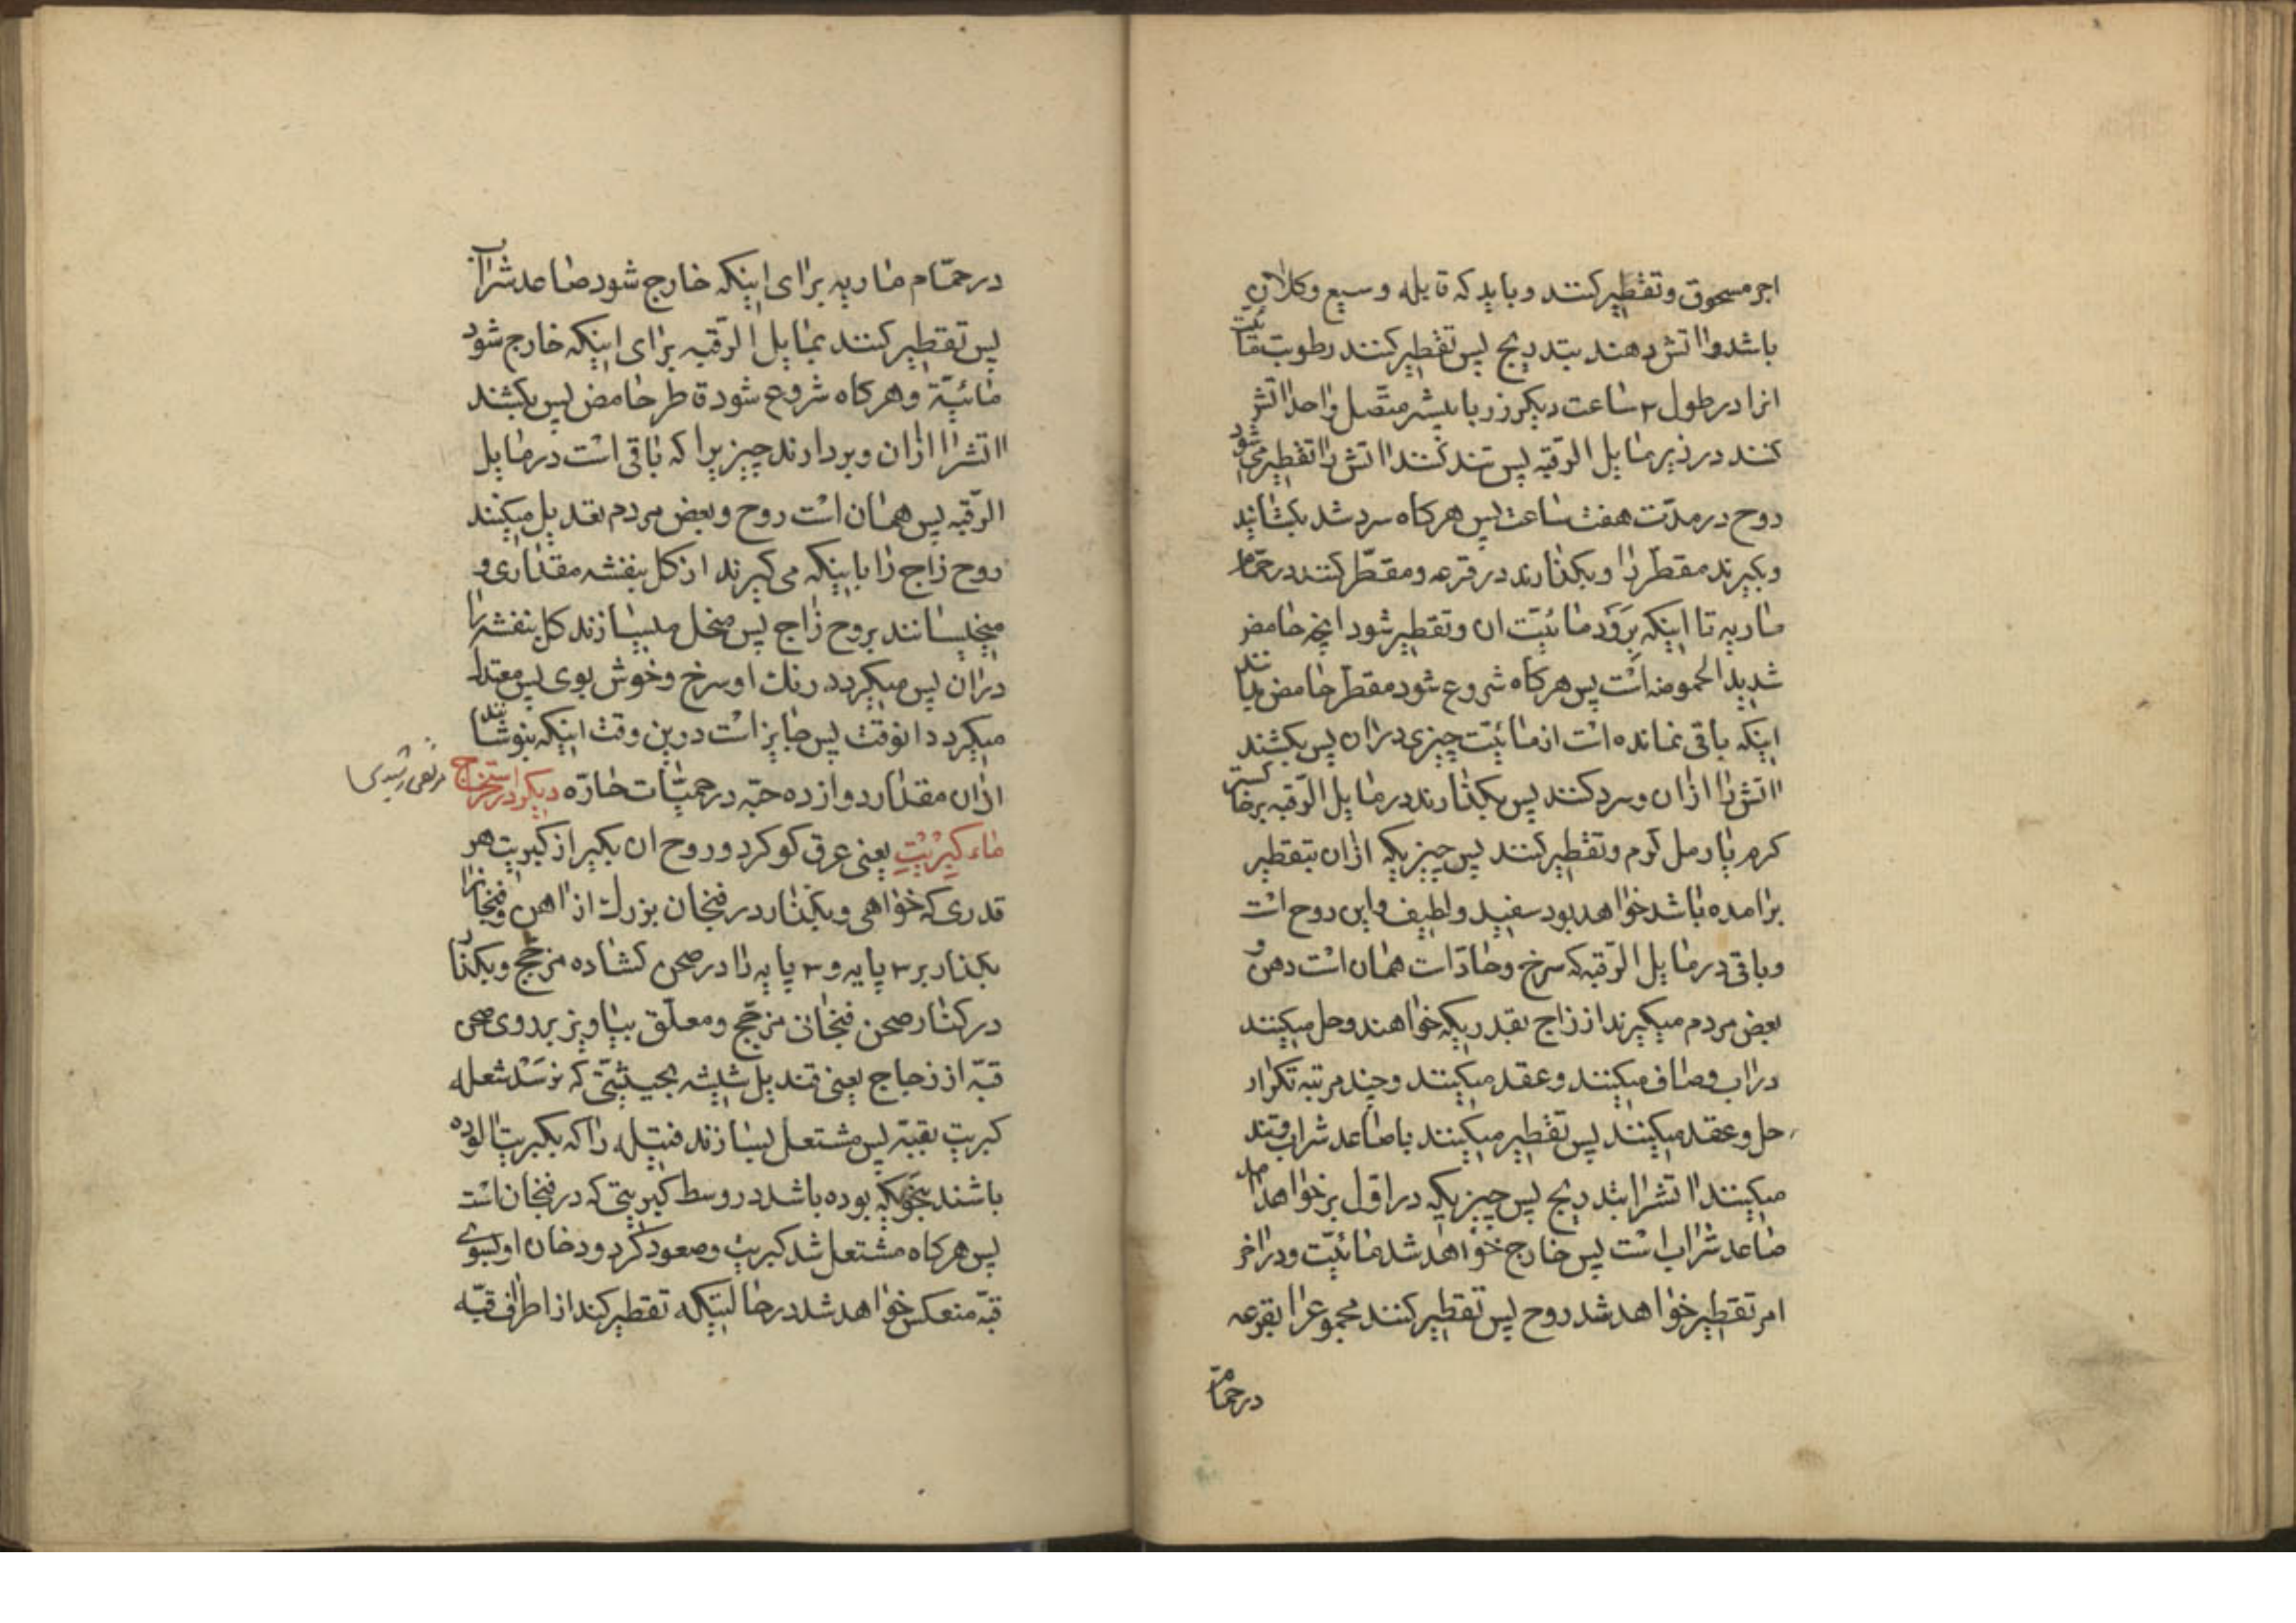 اجر مسحوق و تقطیر کنند و باید که قابله وسیع و کلان
باشد و اتش دهند بتدریج پس تقطیر کنند رطوبت مائیت
انرا در طول ۲ ساعت دیکر زر باتیشه متصل واحد اتش
کنند در زیر مایل الرقبه پس تند کنند اتش را تقطیر می شود
روح در مدّت هفت ساعت پس هرکاه سرد شد بکشانید
و بکیرند مقطّر را و بکذارند در قرعه و مقطّر کنند در حمّام
ماریه تا اینکه بَرَوَد مائیّت ان و تقطیر شود انچه حامض
شدید الحموضه است پس هرکاه شروع شود مقطّر حامض بدانند
اینکه باقی نمانده است از مائیّت چیزی دران پس بکشند
اتش را ازان و سرد کنند پس بکذارند در مایل الرّقبه بر خاکستر
کرم یا رمل کرم و تقطیر کنند پس چیزیکه ازان بتقطیر
برامده باشد خواهد بود سفید و لطیف و این روح است
و باقی در مایل الرّقبه که سرخ و حادّ است همان است دهن و
بعض مردم میکیرند از زاج بقدریکه خواهند و حل میکنند
دراب و صاف میکنند و عقد میکنند و چند مرتبه تکرار
حل و عقد میکنند پس تقطیر میکنند با صاعد شراب و تند
میکنند اتشرا بتدریج پس چیزیکه در اوّل برخواهد امد
صاعد شراب است پس خارج خواهد شد مائیّت و در اخر
امر تقطیر خواهد شد روح پس تقطیر کنند مجموعرا بقرعه
در حمّام
در حمّام ماریه برای اینکه خارج شود صاعد شراب
پس تقطیر کنند بمایل الرّقبه برای اینکه خارج شود
مائیّة و هرکاه شروع شود قاطر حامض پس بکشند
اتشرا ازان و بردارند چیزیرا که باقی است در مایل
الرّقبه پس همان است روح و بعض مردم تعدیل میکنند
روح زاج را باینکه می کیرند از کل بنفشه مقداری و
میخیسانند بروح زاج پس منحل میسازند کل بنفشه را
دران پس میکردد رنك او سرخ و خوش بوی پس معتدل
میکردد انوقت پس جایز است درین وقت اینکه بنوشانند
ازان مقدار دوازده حبّه در حمیّات حارّه دیکر در استخراج
ماء کِبْرِیْتِ یعنی عرق کوکرد و روح ان بکیر از کبریت هر
قدری که خواهی و بکذار در فنجان بزرك از اهن و فنجانرا
بکذار بر ۳ پایه و ۳ پایه را در صحن کشاده مزجّج و بکذار
در کنار صحن فنجان مزجّج و معلّق بیاویز بر روی صحن
قبّه از زجاج یعنی قندیل شیشه بحیثیّتی که نرَسَدْ شعله
کبریت بقبّه پس مشتعل بسازند فتیله را که بکبریت الوده
باشند بنحویکه بوده باشد در وسط کبریتی که در فنجان است
پس هرکاه مشتعل شد کبریت و صعود کرد دخان او بسوی
قبّه منعکس خواهد شد در حالیتیکه تقطیر کند از اطراف قبّه